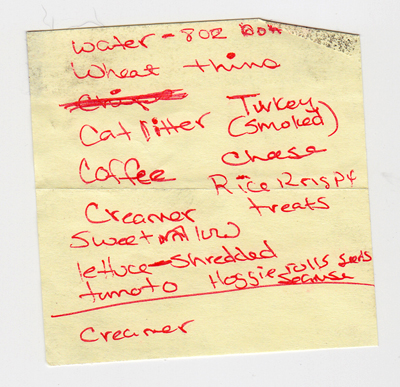 water - 8oz
wheat thins
Cat litter
Turkey
(smoked)
Coffee
cheese
Rice Krispy
treats
Creamer
Sweet n low
lettuce - Shredded
tomato
Hoggie rolls seeds
Creamer